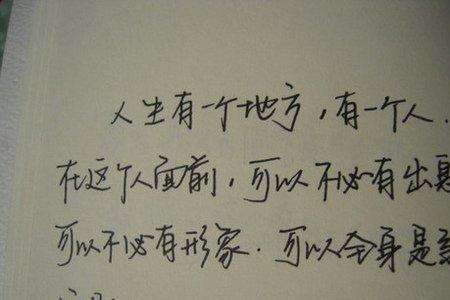 人生有一个地方，有一个人．
在这个人面前，可以不必有出息
可以不必有形象．可以全身是